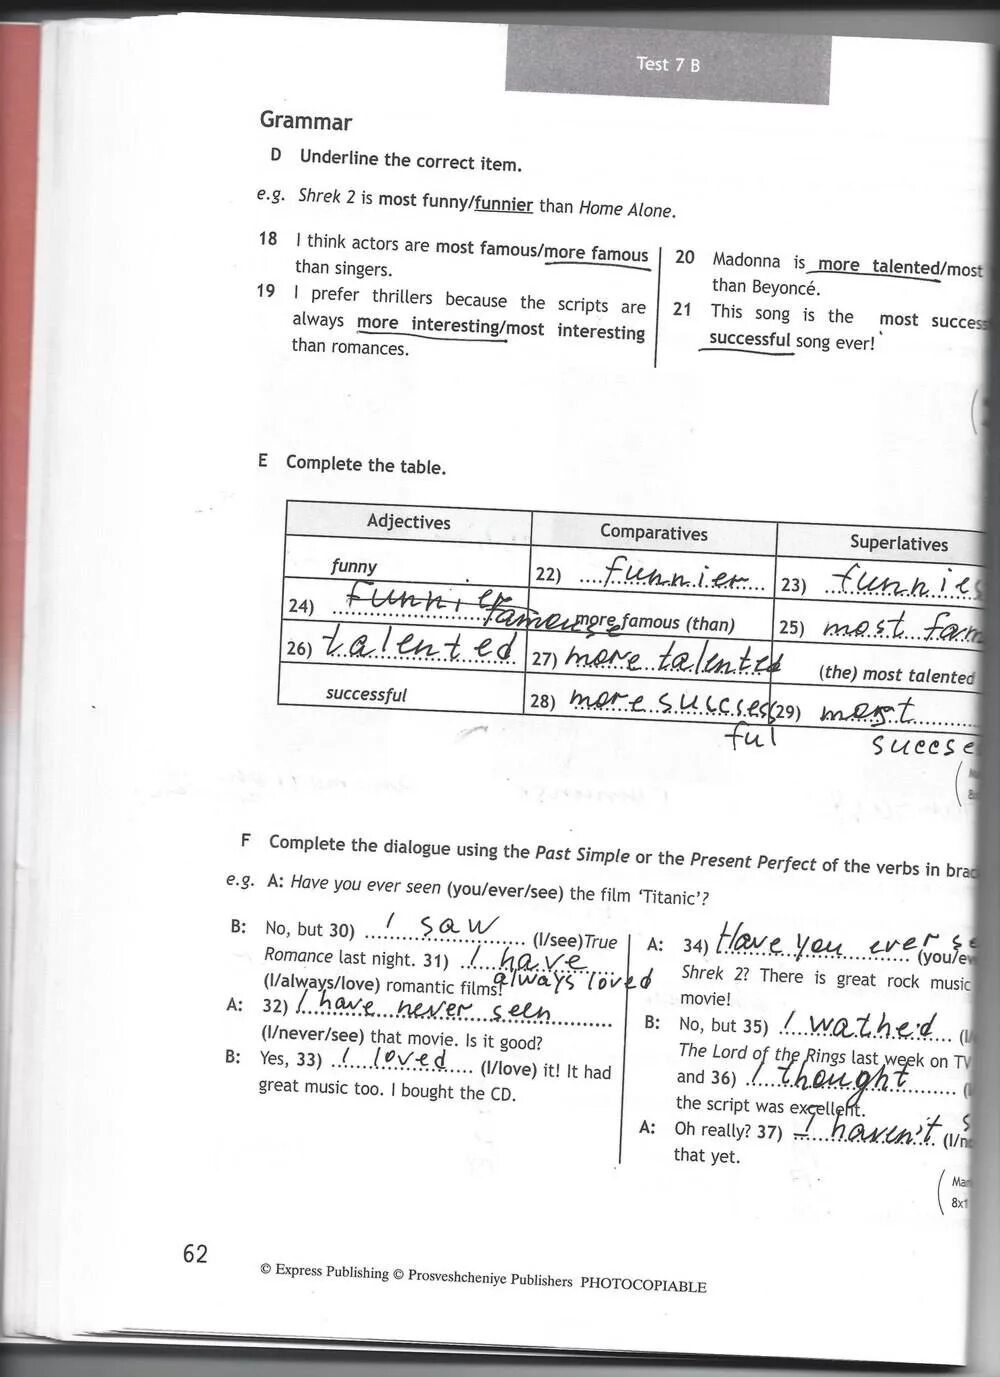 Test 7 B
Grammar
D Underline the correct item.
e.g. Shrek 2 is most funny/funnier than Home Alone.
18 I think actors are most famous/more famous
than singers.
19 I prefer thrillers because the scripts are
always more interesting/most interesting
than romances.
20 Madonna is more talented/most
than Beyoncé.
21 This song is the most success
successful song ever!
E Complete the table.
Adjectives Comparatives Superlatives
funny 22) funnier 23) funnies
24) funnier famouse more famous (than) 25) most fam
26) talented 27) more talented (the) most talented
successful 28) more succses 29) most
ful succse
F Complete the dialogue using the Past Simple or the Present Perfect of the verbs in brac
e.g. A: Have you ever seen (you/ever/see) the film ‘Titanic’?
B: No, but 30) I saw (I/see)True
Romance last night. 31) I have
(I/always/love) romantic films! always loved
A: 32) I have never seen
(I/never/see) that movie. Is it good?
B: Yes, 33) I loved (I/love) it! It had
great music too. I bought the CD.
A: 34) Have you ever se
(you/ev
Shrek 2? There is great rock music
movie!
B: No, but 35) I wathed (I/
The Lord of the Rings last week on TV
and 36) I thought (
the script was excellent.
A: Oh really? 37) I haven't s (I/n
that yet.
Mar
8x1
62
© Express Publishing © Prosveshcheniye Publishers PHOTOCOPIABLE